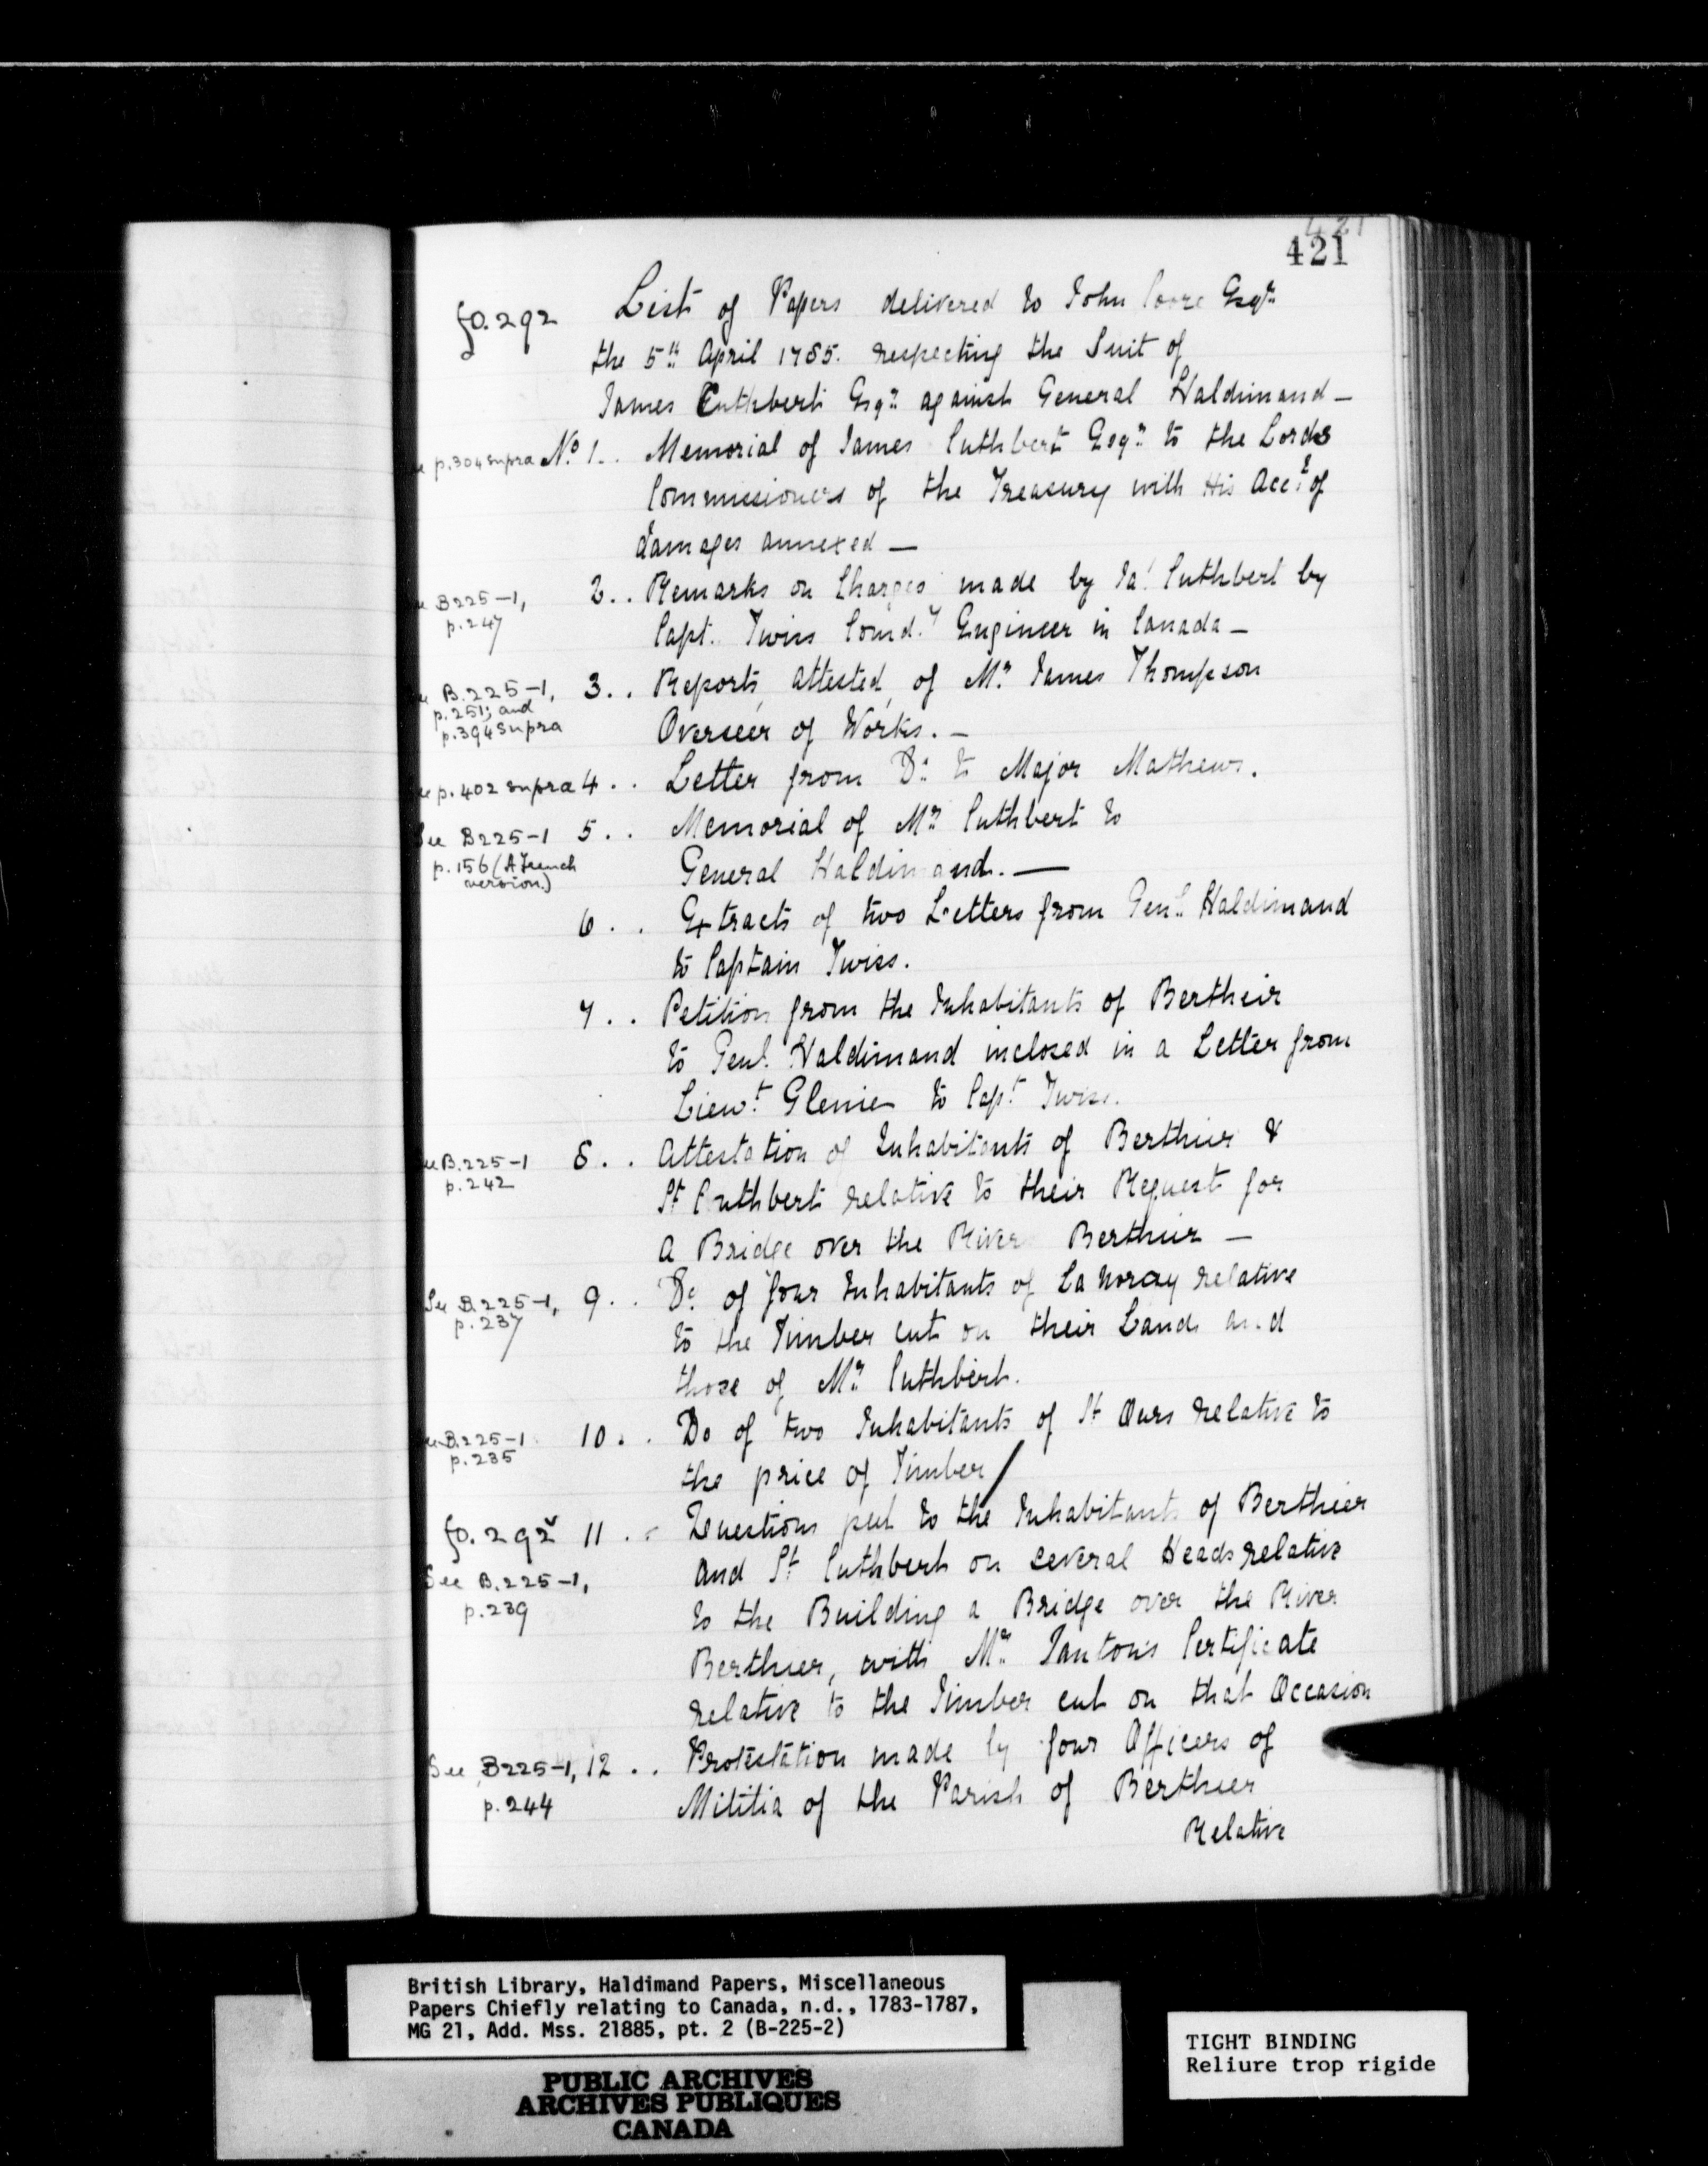 421
421
fo. 292
List of Papers delivered to John Coore Esqr.
the 5th. April 1785. respecting the Suit of
James Cuthbert Esqr. against General Haldimand —
p. 304 supra No. 1 . . Memorial of James Cuthbert Esqr. to the Lords
Commissioners of the Treasury with His Acct. of
damages annexed —
B225-1,
p. 247
2 . . Remarks on Charges made by Ja. Cuthbert by
Capt. Twiss Comd.g Engineer in Canada —
B.225-1,
p. 251; and
p. 394 supra
3 . . Reports, attested, of Mr. James Thompson
Overseer of Works. —
p. 402 supra 4 . . Letter from Do. to Major Mathews.
See B225-1
p. 156 (A French
version.)
5 . . Memorial of Mr. Cuthbert to
General Haldimand. —
6 . . Extracts of two Letters from Genl. Haldimand
to Captain Twiss.
7 . . Petition from the Inhabitants of Bertheir
to Genl. Haldimand inclosed in a Letter from
Lieut. Glenie to Capt. Twiss.
B.225-1
p. 242
8 . . Attestation of Inhabitants of Berthier &
St. Cuthbert relative to their Request for
a Bridge over the River Berthier —
See B.225-1,
p. 237
9 . . Do. of four Inhabitants of La Noray relative
to the Timber cut on their Lands and
those of Mr. Cuthbert.
B.225-1
p. 235
10 . . Do of two Inhabitants of St Ours relative to
the price of Timber /
fo. 292v
See B.225-1,
p. 239
11 . . Questions put to the Inhabitants of Berthier
and St Cuthbert on several Heads relative
to the Building a Bridge over the River
Berthier, with Mr. Jauton's Certificate
relative to the Timber cut on that Occasion
See B225-1,
p. 244
12 . . Protestation made by four Officers of
Militia of the Parish of Berthier
Relative
British Library, Haldimand Papers, Miscellaneous
Papers Chiefly relating to Canada, n.d., 1783-1787,
MG 21, Add. Mss. 21885, pt. 2 (B-225-2)
PUBLIC ARCHIVES
ARCHIVES PUBLIQUES
CANADA
TIGHT BINDING
Reliure trop rigide